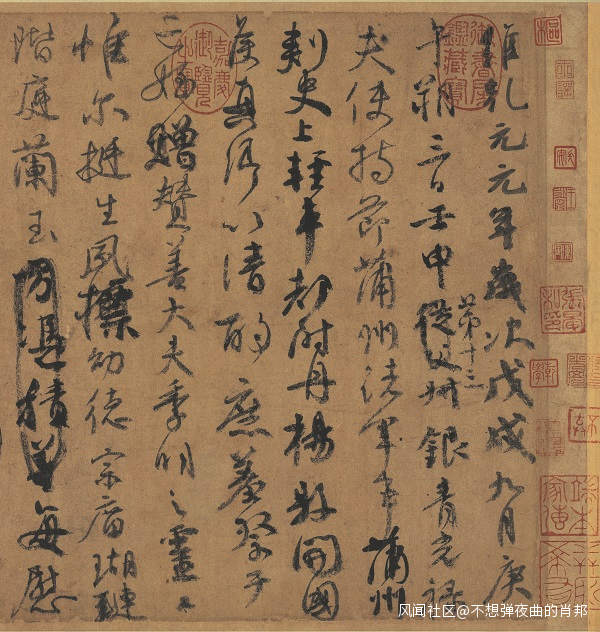 維乾元元年歲次戊戌九月庚
午朔三日壬申從父叔銀青光祿
第十三
夫使持節蒲州諸軍事蒲州
刺史上輕車都尉丹楊縣開國
侯真卿以清酌庶羞祭于
亡姪贈贊善大夫季明之靈曰
惟爾挺生夙標幼德宗廟瑚璉
階庭蘭玉方憑積善每慰
御書房鑑藏寶
嘉慶御覽之寶
风闻社区@不想弹夜曲的肖邦